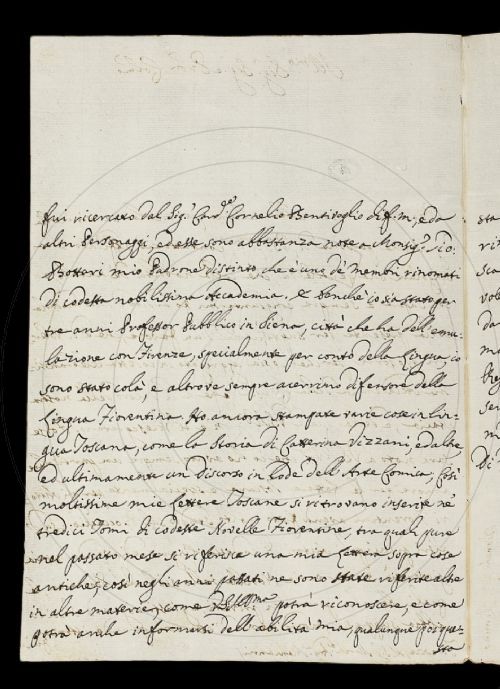 fui ricercato dal Sig.r Card.le Cornelio Bentivoglio di f: m:, e da
altri Personaggi, ed esse sono abbastanza note a Monsig.r Gio:
Bottari mio Padrone distinto, che è uno de' membri rinomati
di codesta nobilissima Accademia. E benchè io sia stato per
tre anni Professor Pubblico in Siena, città che ha dell'emu-
lazione con Firenze, specialmente per conto della Lingua, io
sono stato colà, e altrove sempre acerrimo difensore della
Lingua Fiorentina. Ho ancora stampate varie cose in Lin-
gua Toscana, come la Storia di Catterina Vizzani, ed altre,
ed ultimamente un Discorso in Lode dell'Arte Comica, Così
moltissime mie Lettere Toscane si ritrovano inserite ne'
tredici Tomi di codeste Novelle Fiorentine, tra quali pure
nel passato mese si riferisce una mia Lettera sopra cose
antiche, così negli anni passati ne sono state riferite altre
in altre materie, come potrà riconoscere, e come
potrà anche informarsi dell'abilità mia, qualunque
sta